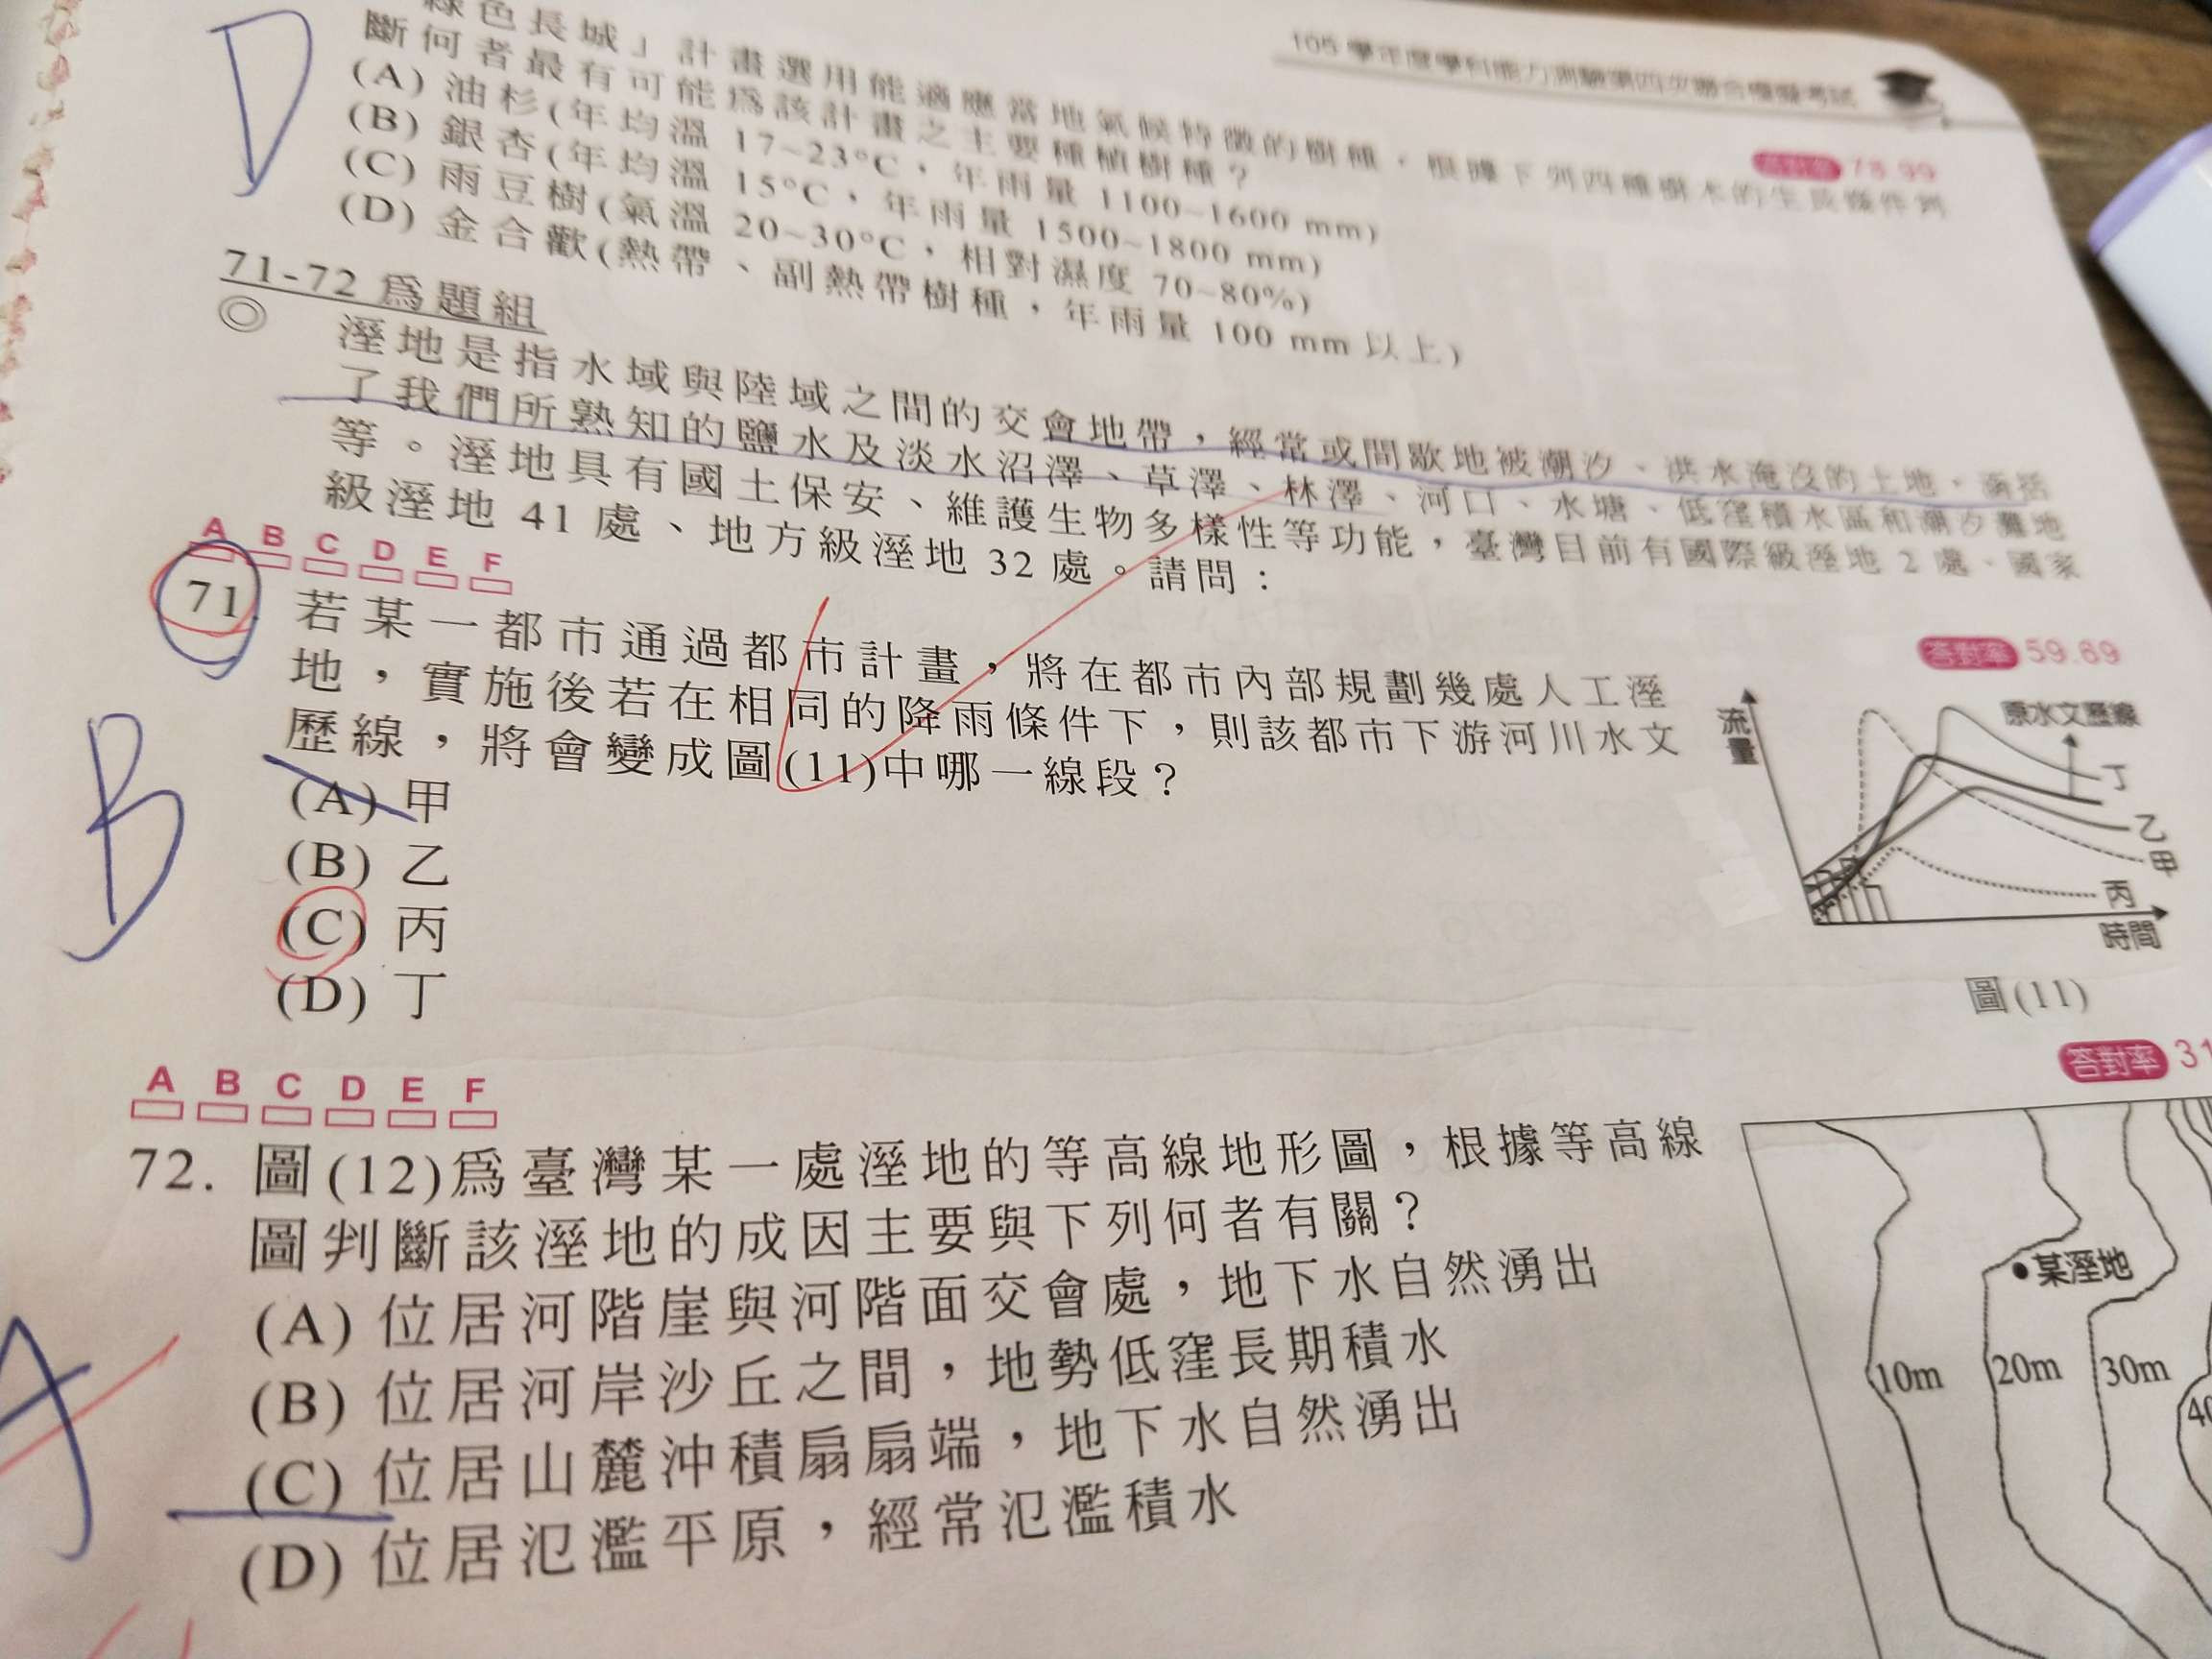 105 學年度學科能力測驗第四次聯合模擬考試
綠色長城」計畫選用能適應當地氣候特徵的樹種，根據下列四種樹木的生長條件判
斷何者最有可能為該計畫之主要種植樹種？
答對率 78.99
(A) 油杉(年均溫 17~23°C，年雨量 1100~1600 mm)
(B) 銀杏(年均溫 15°C，年雨量 1500~1800 mm)
(C) 雨豆樹(氣溫 20~30°C，相對濕度 70~80%)
(D) 金合歡(熱帶、副熱帶樹種，年雨量 100 mm 以上)
D
71-72 為題組
◎ 溼地是指水域與陸域之間的交會地帶，經常或間歇地被潮汐、洪水淹沒的土地，涵括
了我們所熟知的鹽水及淡水沼澤、草澤、林澤、河口、水塘、低窪積水區和潮汐灘地
等。溼地具有國土保安、維護生物多樣性等功能，臺灣目前有國際級溼地 2 處、國家
級溼地 41 處、地方級溼地 32 處。請問：
A B C D E F
答對率 59.69
71. 若某一都市通過都市計畫，將在都市內部規劃幾處人工溼
地，實施後若在相同的降雨條件下，則該都市下游河川水文
歷線，將會變成圖(11)中哪一線段？
(A) 甲
(B) 乙
(C) 丙
(D) 丁
B
流量
原水文歷線
丁
乙
甲
丙
時間
圖(11)
A B C D E F
答對率 31
72. 圖(12)為臺灣某一處溼地的等高線地形圖，根據等高線
圖判斷該溼地的成因主要與下列何者有關？
(A) 位居河階崖與河階面交會處，地下水自然湧出
(B) 位居河岸沙丘之間，地勢低窪長期積水
(C) 位居山麓沖積扇扇端，地下水自然湧出
(D) 位居氾濫平原，經常氾濫積水
A
某溼地
10m
20m
30m
40